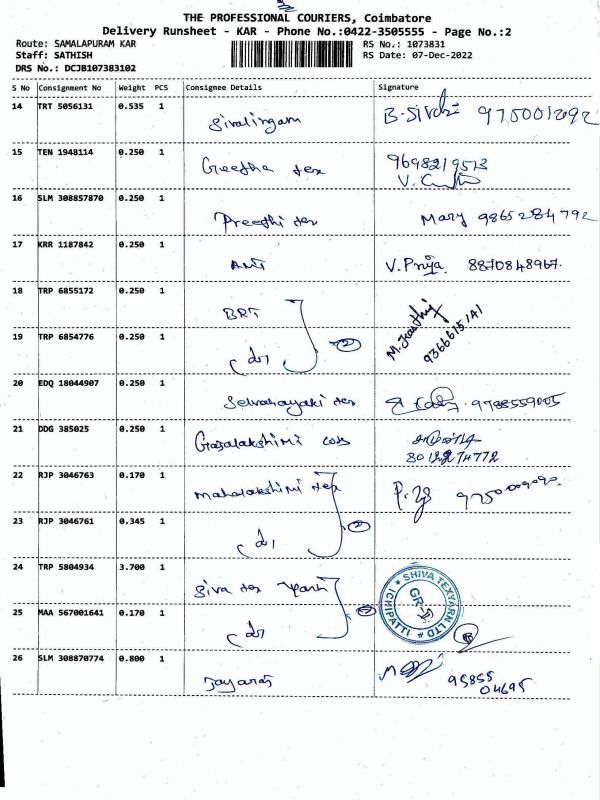 THE PROFESSIONAL COURIERS, Coimbatore
Delivery Runsheet - KAR - Phone No.:0422-3505555 - Page No.:2
Route: SAMALAPURAM KAR
Staff: SATHISH
DRS No.: DCJB107383102
RS No.: 1073831
RS Date: 07-Dec-2022
S No Consignment No Weight PCS Consignee Details Signature
14 TRT 5056131 0.535 1 Sivalingam
15 TEN 1948114 0.250 1 Geetha tex 9698219513
16 SLM 308857870 0.250 1 Preethi tex Mary 9865284792
17 KRR 1187842 0.250 1 V.Priya 8870848967.
18 TRP 6855172 0.250 1 BRT
19 TRP 6854776 0.250 1 2
20 EDQ 18044907 0.250 1 Selvanayaki tex 9788559005
21 DDG 385025 0.250 1 Gajalakshimi
22 RJP 3046763 0.170 1 Mahalakshimi tex
23 RJP 3046761 0.345 1 2
24 TRP 5804934 3.700 1 Siva tex yarn
SHIVA TEXYARN LTD
ICHIPATTI
25 MAA 567001641 0.170 1 2
26 SLM 308870774 0.800 1 Jayaraj 95855
04695